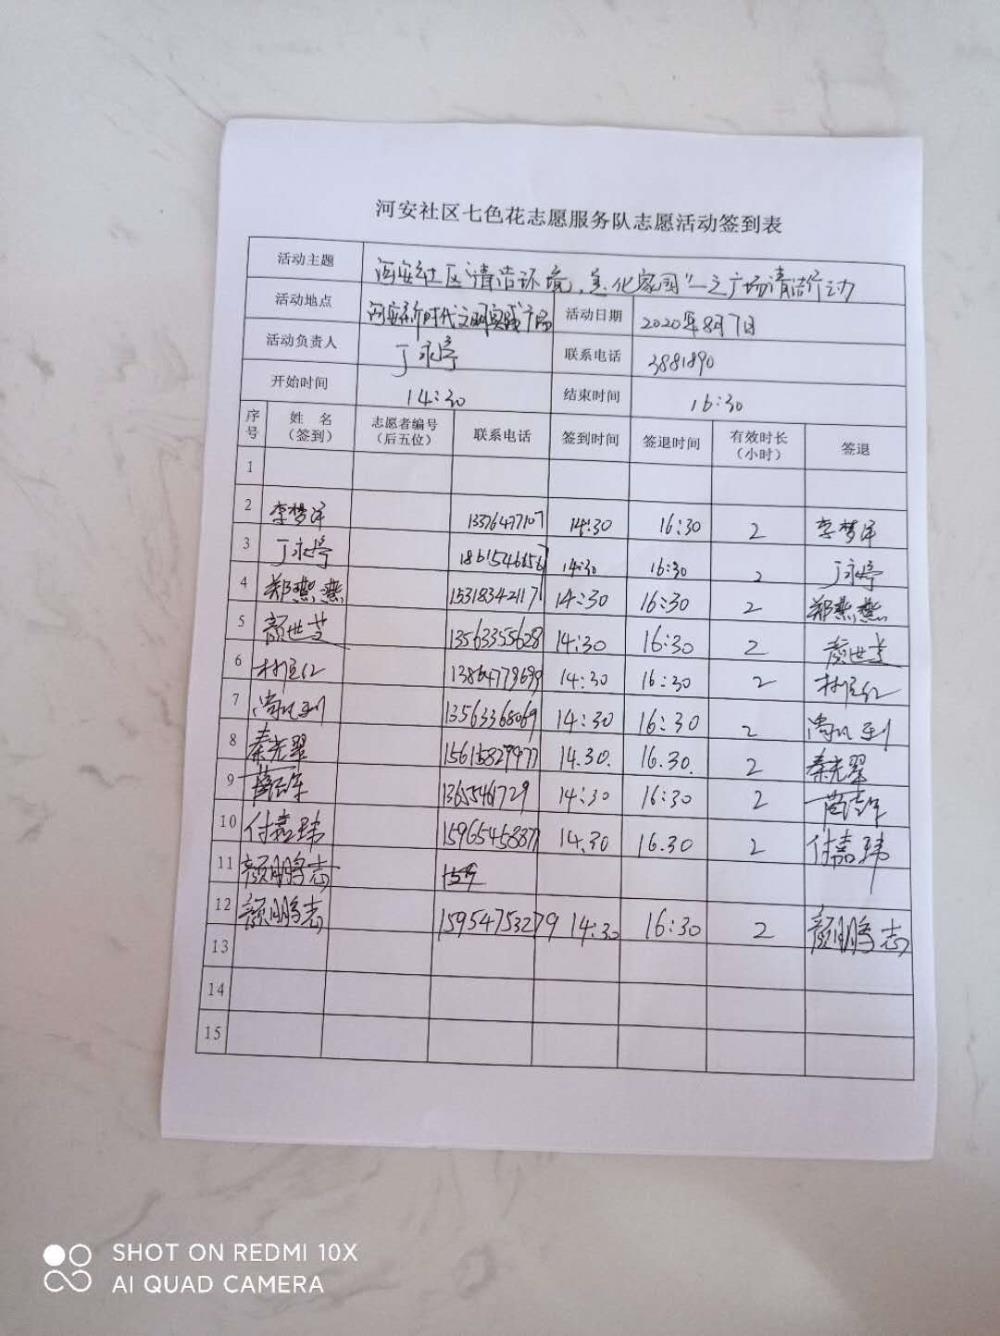 河安社区七色花志愿服务队志愿活动签到表
活动主题 河安社区"清洁环境,美化家园"—之广场清洁行动
活动地点 河安新时代文明实践广场 活动日期 2020年8月7日
活动负责人 丁永婷 联系电话 3881890
开始时间 14:30 结束时间 16:30
序号 姓名(签到) 志愿者编号(后五位) 联系电话 签到时间 签退时间 有效时长(小时) 签退
1
2 李梦泽 13376477107 14:30 16:30 2 李梦泽
3 丁永婷 14:30 16:30 2 丁永婷
4 郑燕燕 15318342117 14:30 16:30 2 郑燕燕
5 颜世芸 13563355628 14:30 16:30 2 颜世芸
6 13864779699 14:30 16:30 2
7 13563368069 14:30 16:30 2
8 秦光翠 15615829477 14.30. 16.30. 2 秦光翠
9 14:30 16:30 2
10 付嘉玮 15965458877 14.30 16.30 2 付嘉玮
11 颜鹏志 159
12 颜鹏志 15954753279 14:30 16:30 2 颜鹏志
13
14
15
SHOT ON REDMI 10X
AI QUAD CAMERA